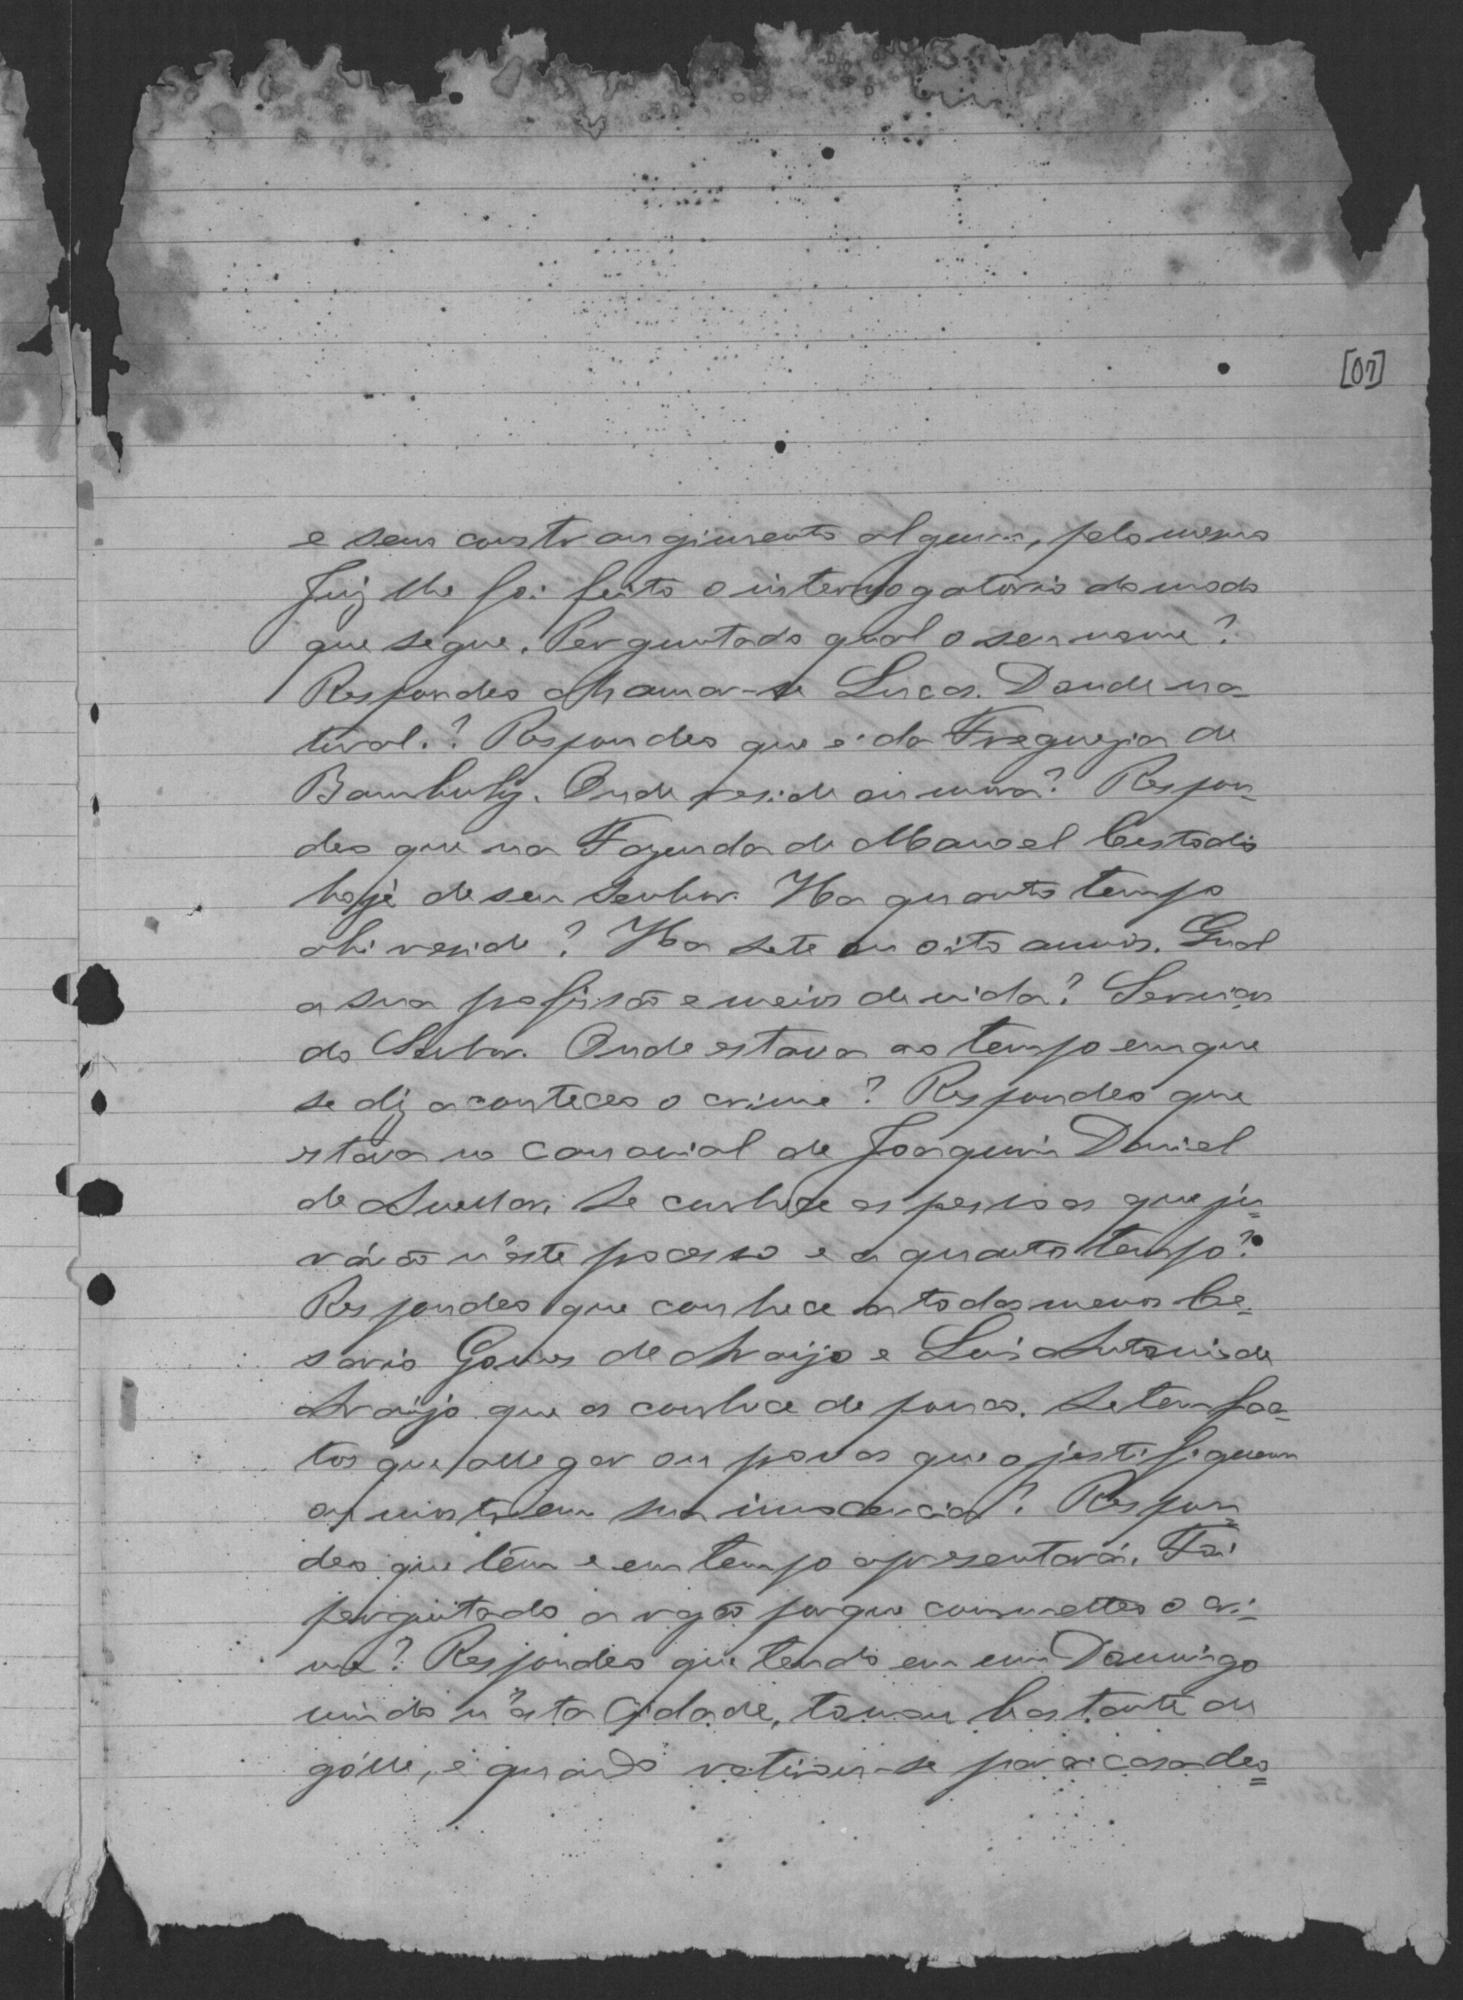 [07]
e sem constrangimento algum, pelo mesmo
Juiz lhe foi feito o interrogatorio do modo
que segue. Perguntado qual o seu nome?
Respondeo chamar-se Lucas. Donde na-
tural.? Respondeo que é da Freguezia de
Bambuhy. Onde reside ou mora? Respon-
deo que na Fazenda de Manoel Custodio
hoje de seu Senhor. Ha quanto tempo
ahi reside? Ha sete ou oito annos. Qual
a sua profissão e meios de vida? Serviços
do Senhor. Onde estava ao tempo em que
se diz aconteceo o crime? Respondeo que
estava no canavial de Joaquim Daniel
de Se conhece as pessoas que ju-
rárão n'este processo e a quanto tempo?
Respondeo que conhece a todas menos Ce-
sario Gomes de Araujo e Luis Antonio de
Araujo que os conhece de pouco. Se tem fac-
tos que allegar ou provas que o justifiquem
ou mostrem sua innocencia? Respon-
deo que tem e em tempo apresentará. Foi
perguntado a rasão porque commetteo o cri-
me? Respondeo que tendo em um Domingo
vindo n'esta Cidade, tomou bastante de
gólle, e quando retirou-se para casa deo